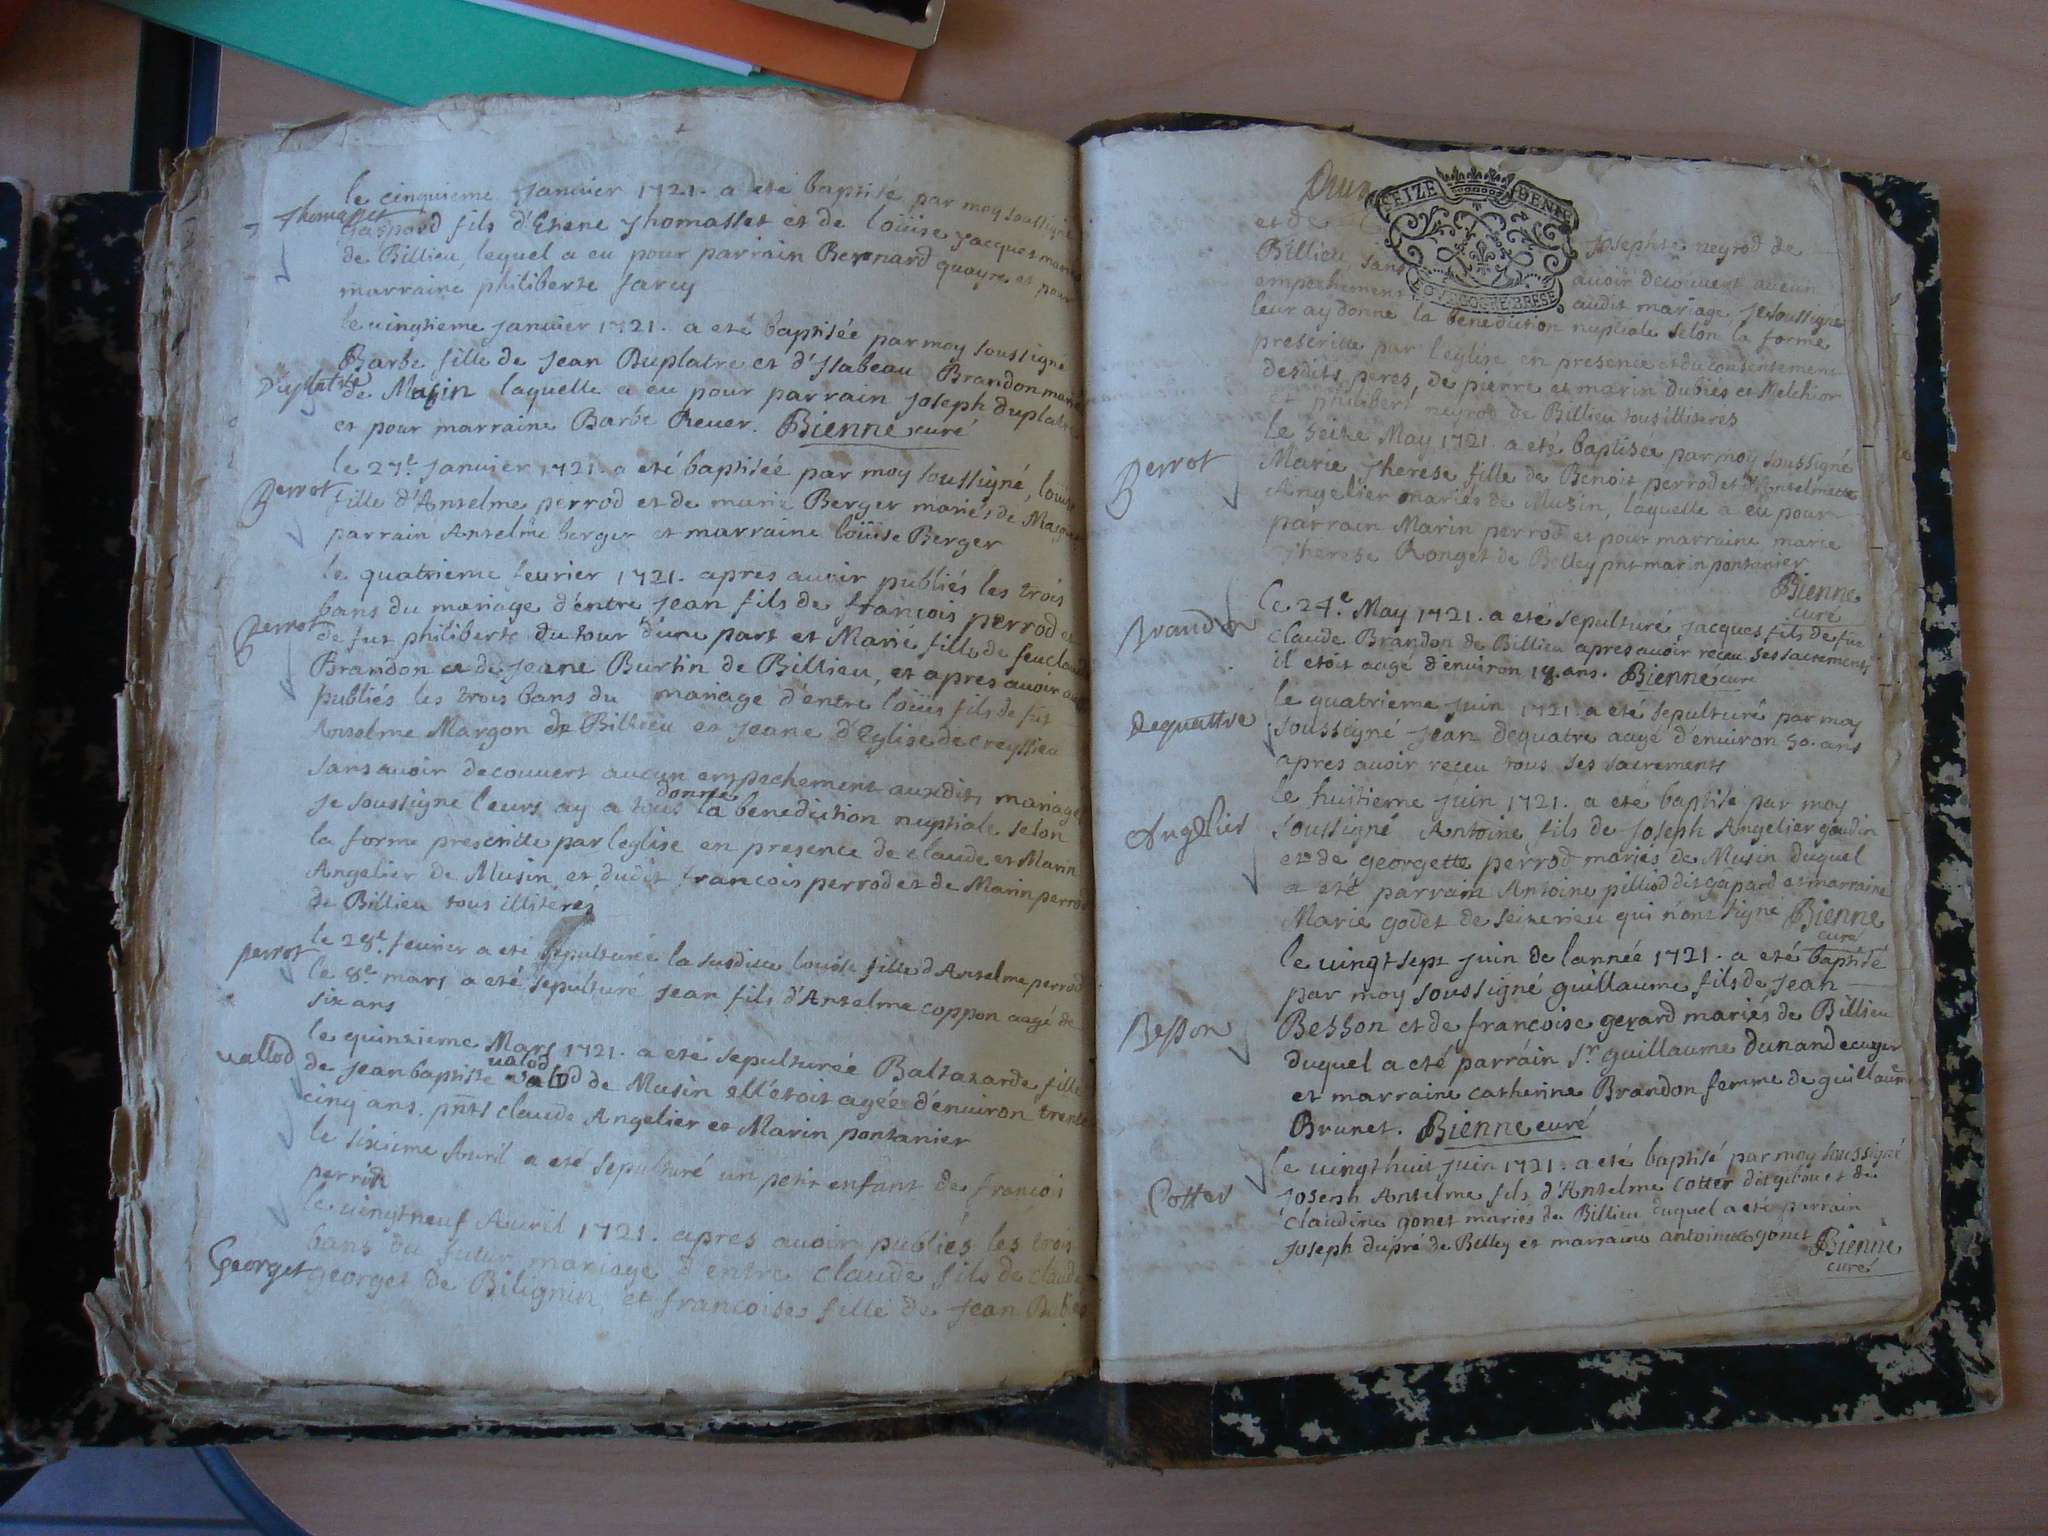 le cinquieme Janvier 1721. a eté baptisé par moy soussigné
Thomasset
Gaspard fils d'Etiene Thomasset et de loüise Jacquet mariés
de Billieu, lequel a eu pour parrain Bernard et pour
marraine philiberte farcy
le vingtieme Janvier 1721. a eté baptisée par moy soussigné
Barbe fille de Jean Duplatre et d'Isabeau Brandon mariés
Duplatre
de Musin laquelle a eu pour parrain Joseph duplatre
et pour marraine Barbe Reuer. Bienne curé
le 27e Janvier 1721. a eté baptisée par moy soussigné, loüise
Perrot
fille d'Anselme perrod et de marie Berger mariés de
parrain Anselme berger et marraine loüise Berger
le quatrieme feurier 1721. apres auoir publiés les trois
bans du mariage d'entre Jean fils de francois perrod et
Perrot
de fut philiberte Dutour d'une part et Marie fille de feu claude
Brandon et de Jeane Burtin de Billieu, et apres auoir aussi
publiés les trois bans du mariage d'entre loüis fils de fut
Anselme Margon de Billieu et Jeane d'Eglise de creyssieu
sans auoir decouvert aucun empechement auxdits mariages
donné
Je soussigné leurs ay a tous la benediction nuptiale selon
la forme prescritte par leglise en presence de claude et Marin
Angelier de Musin et dudit francois perrod et de Marin perrod
de Billieu tous illiterés
le 28e feurier a eté sepulturée la susditte louise fille d'Anselme perrod
perrot
le 8e mars a eté sepulturé Jean fils d'Anselme coppon aagé de
six ans
le quinzieme Mars 1721. a eté sepulturée Baltazarde fille
valod
vallod
de Jean baptiste valod de Musin ell'etoit agée d'enuiron trente
cinq ans. pnts claude Angelier et Marin pontanier
le sixieme Auril a eté sepulturé un petit enfant de francois
perrod
le vingt neuf Auril 1721. apres auoir publiés les trois
bans du futur mariage d'entre claude fils de claude
Georget
georget de Bilignin, et francoise fille de Jean Dubies
SEIZE DENIE
BOURGOGNE BRESE
et de Josephte neyrod de
Billieu, sans auoir decouvert aucun
empechement audit mariage, Je soussigné
leur ay donné la benediction nuptiale selon la forme
prescritte par leglise en presence et du consentement
desdits peres, de pierre et marin dubies et Melchior
et philibert neyrod de Billieu tous illiteres
le seize May 1721. a eté baptisée par moy soussigné
Perrot
Marie Therese fille de Benoit perrod et d'Anselmette
Angelier mariés de Musin, laquelle a eu pour
parrain Marin perrod et pour marraine marie
Therese Ronget de Belley pnt marin pontanier
Bienne
curé
le 24.e May 1721. a eté sepulturé Jacques fils de fut
Brandon
claude Brandon de Billieu apres auoir receu ses sacrements
il etoit aagé d'enuiron 18. ans. Bienne curé
le quatrieme Juin 1721. a eté sepulturé par moy
dequattre
soussigné Jean dequatre aagé d'enuiron 50. ans
apres auoir receu tous ses sacrements
le huitieme Juin 1721. a eté baptisé par moy
Angelier
soussigné Antoine fils de Joseph Angelier goudin
et de georgette perrod mariés de Musin duquel
a eté parrain Antoine pilliod dit gapard et marraine
Marie godet de seizerieu qui n'ont signé Bienne
curé
le vingt sept Juin de lannée 1721. a eté baptisé
par moy soussigné guillaume fils de Jean
Besson
Besson et de francoise gerard mariés de Billieu
duquel a eté parrain Sr guillaume dunand ecuyer
et marraine catherine Brandon femme de guillaume
Brunet. Bienne curé
le vingt huit Juin 1721. a eté baptisé par moy soussigné
Cotter
Joseph Anselme fils d'Anselme Cotter dit gibou et de
claudine gonet mariés de Billieu duquel a eté parrain
Joseph dupré de Belley et marraine antoinette gonet Bienne
curé